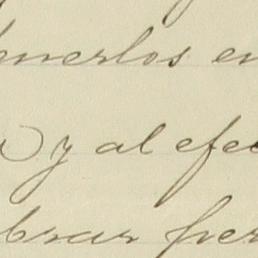 enerlos en
y al efec
brar per